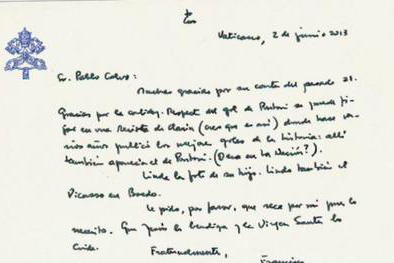 Vaticano, 2 de junio 2013
Sr. Pablo Calvo:
Muchas gracias por su carta del pasado 21.
Gracias por la Respecto del gol de Pontoni se puede fi-
jar en una Revista de Clarín (creo que es así) donde hace va-
rios años publicó los mejores goles de la historia: allí
también apareció el de Pontoni. (O era en La Nación?).
Linda la foto de su hijo. Lindo también el
Picasso en Boedo.
Le pido, por favor, que rece por mí pues lo
necesito. Que Jesús lo bendiga y la Virgen Santa lo
cuide.
Fraternalmente,
Francisco